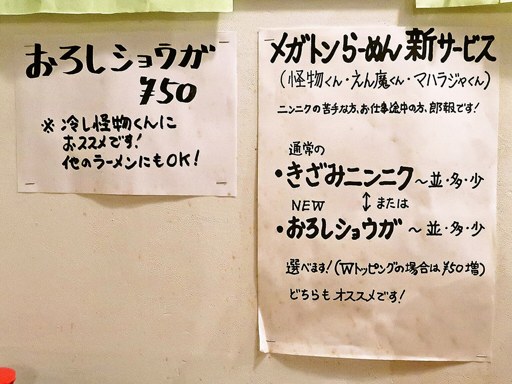 おろしショウガ
¥50
※ 冷し怪物くんに
おススメです!
他のラーメンにもOK!
メガトンらーめん 新サービス
(怪物くん・えん魔くん・マハラジャくん)
ニンニクの苦手な方、お仕事途中の方、郎報です!
通常の
・きざみニンニク ~並・多・少
NEW ↕または
・おろしショウガ ~並・多・少
選べます!(Wトッピングの場合は¥50増)
どちらもオススメです!